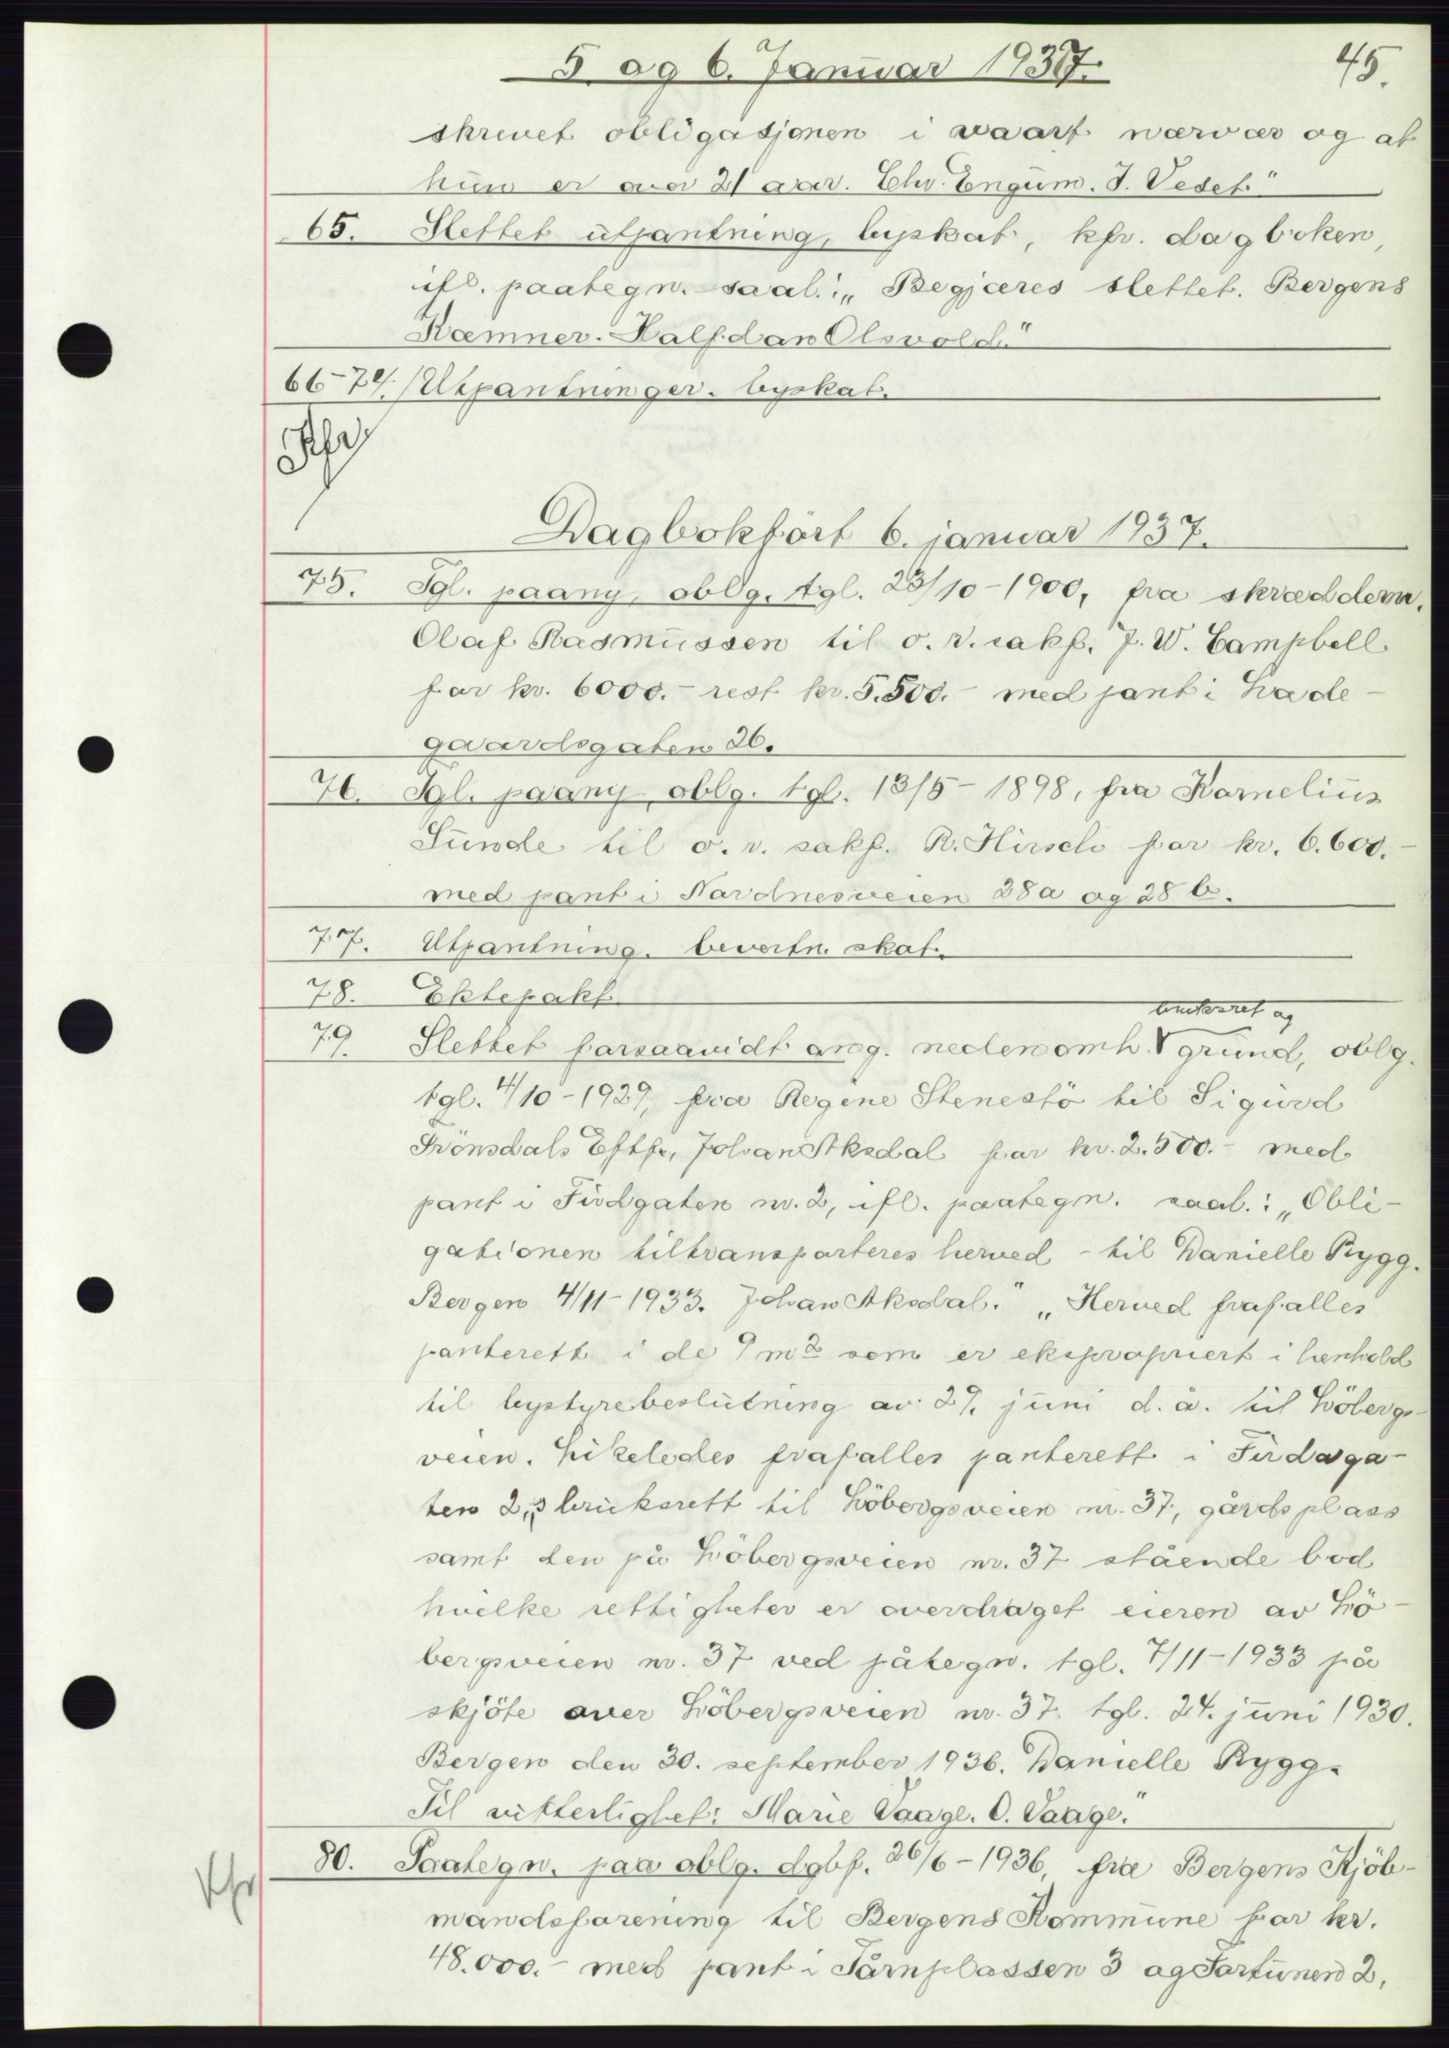 5. og 6. Januar 1937.
45.
skrevet obligasjonen i vaart nærvær og at
hun er over 21 aar. Chr. Engum. J. Vedet."
65. Slettet utpantning, byskat, kfr. dagboken,
ifl. paategn. saal.: „Begjæres slettet. Bergens
Kæmner. Halfdan Olsvold."
66-74. Utpantninger. byskat.
Dagbokført 6. januar 1937.
75. Tgl. paany, oblg. tgl. 23/10-1900, fra skræddem.
Olaf Rasmussen til o.r.sakf. J. W. Campbell
for kr. 6000.- rest kr. 5.500.- med pant i Lade-
gaardsgaten 26.
76. Tgl. paany, oblg. tgl. 13/5-1898, fra Kornelius
Sunde til o.r. sakf. R. Hirsch for kr. 6.600.-
med pant i Nordnesveien 28a og 28 b.
77. Utpantning. bevertn. skat.
78. Ektepakt.
bruksret og
79. Slettet forsaavidt ang. nedenomh. V grund, oblg.
tgl. 4/10-1929, fra Regine Stenestö til Sigurd
Svönsdals Eftf., Johan Aksdal for kr. 2.500.- med
pant i Firdgaten nr. 2, ifl. paategn. saal.: „Obli-
gationen tiltransporteres herved - til Danielle Rygg.
Bergen 4/11-1933. Johan Aksdal." „Herved frafalles
panterett i de 9 m2 som er ekspropriert i henhold
til bystyrebeslutning av 29. juni d. å. til Löbergs-
veien. Likeledes frafalles panterett i Firdaga-
ten 2,s bruksrett til Löbergsveien nr. 37, gårdsplass
samt den på Löbergsveien nr. 37 stående bod
hvilke rettigheter er overdraget eieren av Lö-
bergsveien nr. 37 ved påtegn. tgl. 7/11-1933 på
skjöte over Löbergsveien nr. 37. tgl. 24. juni 1930.
Bergen den 30. september 1936. Danielle Rygg.
Til vitterlighet: Marie Vaage. O. Vaage."
80. Paategn. paa oblg. dgbf. 26/6-1936, fra Bergens Kjöb-
mandsforening til Bergens Kommune for kr.
48.000.- med pant i Tårnplassen 3 og Fortunen 2,